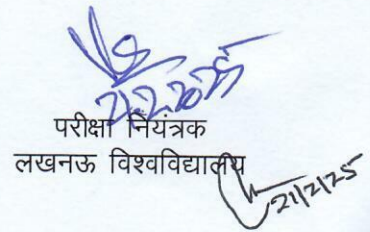 21.2.2025
परीक्षा नियंत्रक
लखनऊ विश्वविद्यालय
21/2/25